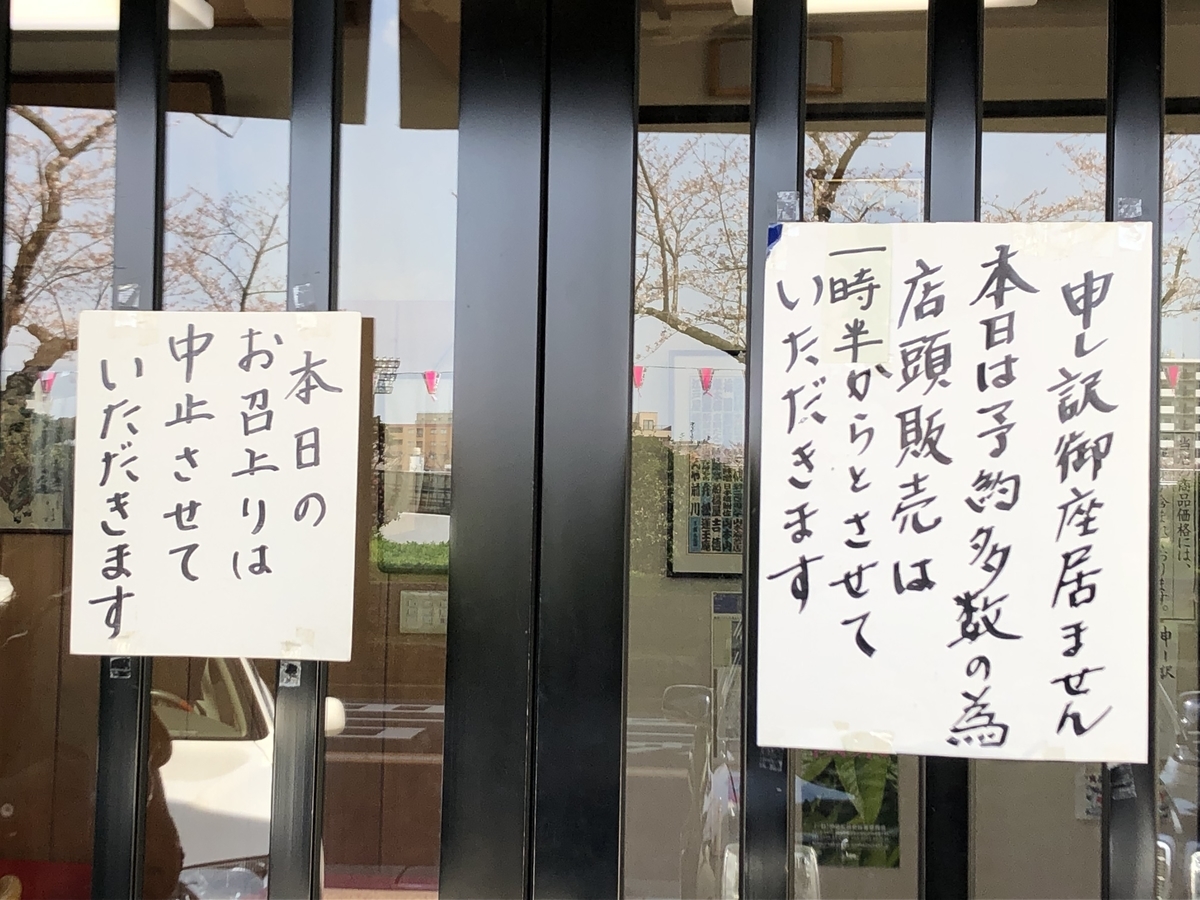 申し訳御座居ません
本日は予約多数の為
店頭販売は
一時半からとさせて
いただきます
本日の
お召上りは
中止させて
いただきます
商品価格には、
申し訳